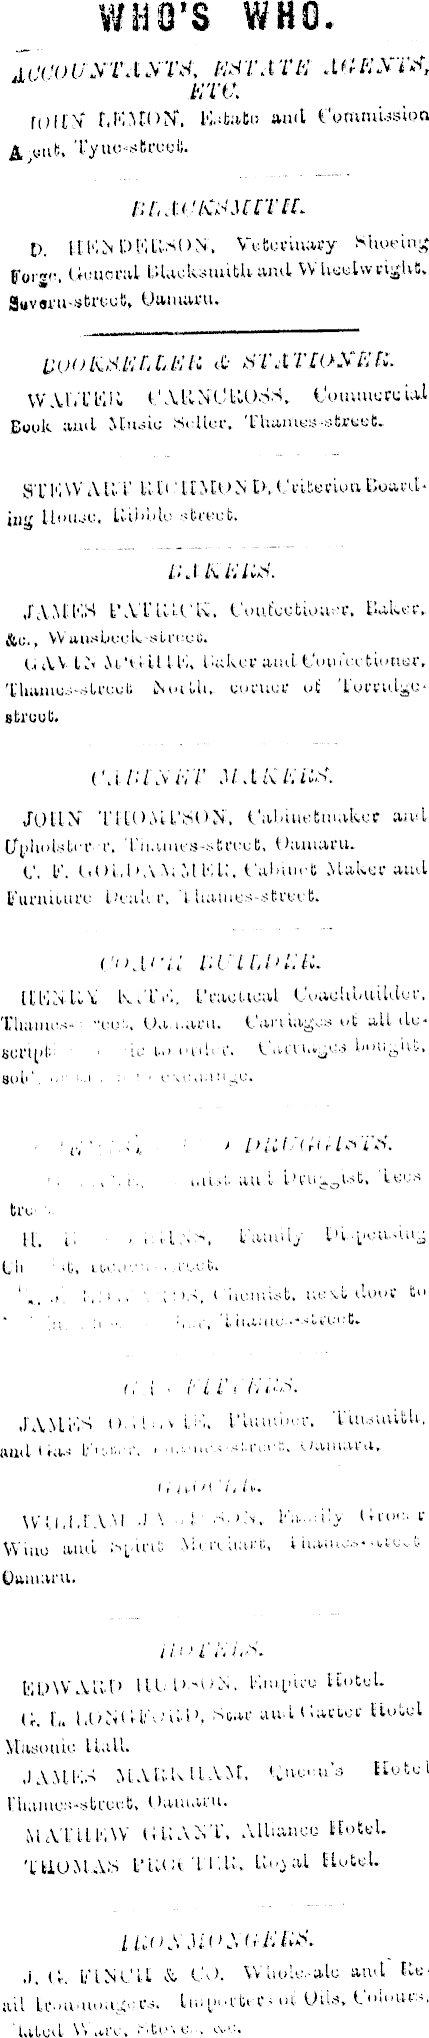 WHO'S WHO.
ACCOUNTANTS, ESTATE AGENTS,
ETC.
JOHN LEMON, Estate and Commission
Agent, Tyne-street.
BLACKSMITH.
D. HENDERSON, Veterinary Shoeing
Forge, General Blacksmith and Wheelwright,
Severn-street, Oamaru.
BOOKSELLER & STATIONER.
WALTER CARNCROSS, Commercial
Book and Music Seller, Thames-street.
STEWART RICHMOND, Criterion Board-
ing House, Ribble street.
BAKERS.
JAMES PATRICK, Confectioner, Baker,
&c., Wansbeck-street.
GAVIN M'GHIE, Baker and Confectioner,
Thames-street North, corner of Torridge-
street.
CABINET MAKERS.
JOHN THOMPSON, Cabinetmaker and
Upholsterer, Thames-street, Oamaru.
C. F. GOLDAMMER, Cabinet Maker and
Furniture Dealer, Thames-street.
COACH BUILDER.
HENRY KATE, Practical Coachbuilder,
Thames-street, Oamaru. Carriages of all de-
script to order. Carriages bought,
exchange.
DRUGGISTS.
and Druggist, Tees
H. Family Dispensing
Chemist, next door to
Thames-street.
GAS FITTERS.
JAMES Plumber, Tinsmith,
and Gas Fitter, Thames-street, Oamaru.
GROCER.
WILLIAM Family Grocer
Wine and Spirit Merchant, Thames-street
Oamaru.
HOTELS.
EDWARD HUDSON, Empire Hotel.
G. L. LONGFORD, Star and Garter Hotel
Masonic Hall.
JAMES MARKHAM, Queen's Hotel
Thames-street, Oamaru.
MATHEW GRANT, Alliance Hotel.
THOMAS PROCTER, Royal Hotel.
IRONMONGERS.
J. G. FINCH & CO. Wholesale and Re-
ail Ironmongers. Importers of Oils, Colours,
lated Ware, Stoves, &c.